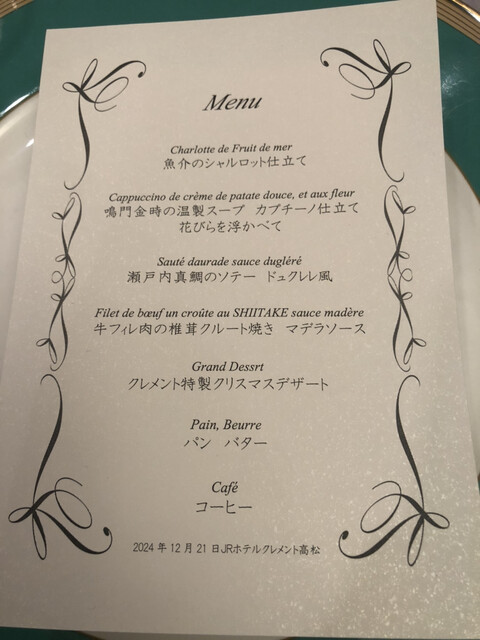 Menu
Charlotte de Fruit de mer
魚介のシャルロット仕立て
Cappuccino de crème de patate douce, et aux fleur
鳴門金時の温製スープ　カプチーノ仕立て
花びらを浮かべて
Sauté daurade sauce dugléré
瀬戸内真鯛のソテー　デュクレレ風
Filet de bœuf un croûte au SHIITAKE sauce madère
牛フィレ肉の椎茸クルート焼き　マデラソース
Grand Dessrt
クレメント特製クリスマスデザート
Pain, Beurre
パン　バター
Café
コーヒー
2024年12月21日JRホテルクレメント高松